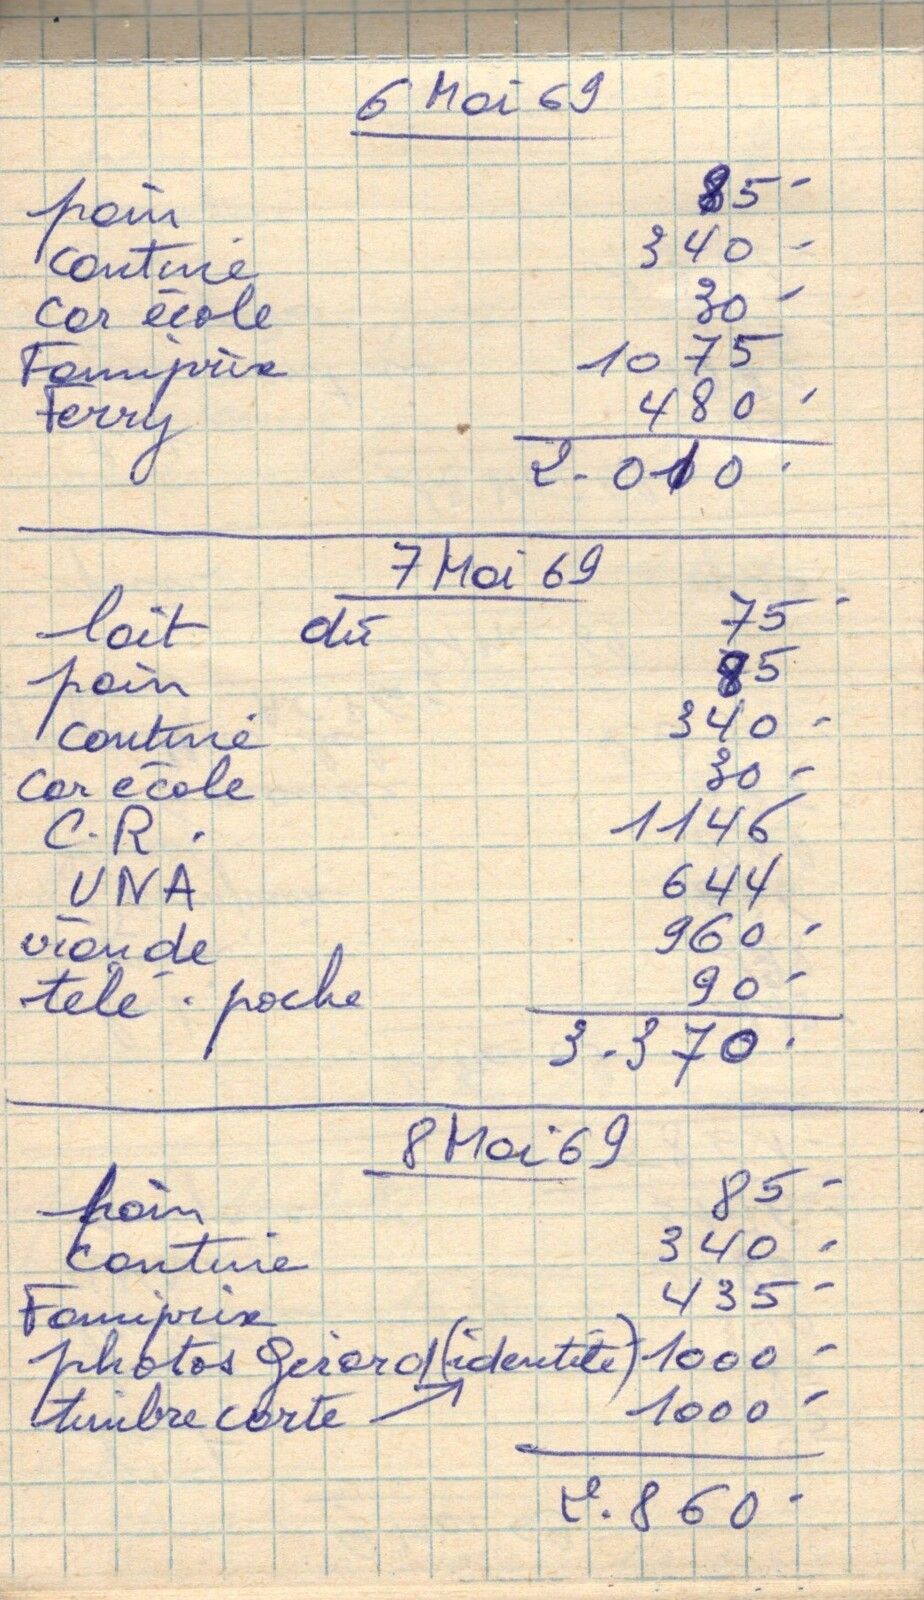 6 Mai 69
pain 85-
cantine 340-
car école 30-
Famiprix 1075
Ferry 480-
2.010.
7 Mai 69
lait dû 75-
pain 85
cantine 340-
car école 30-
C.R. 1146
UNA 644
viande 960-
télé. poche 90-
3.370.
8 Mai 69
pain 85-
cantine 340-
Famiprix 435-
photos Gérard (identité) 1000-
timbre carte 1000-
2.860-